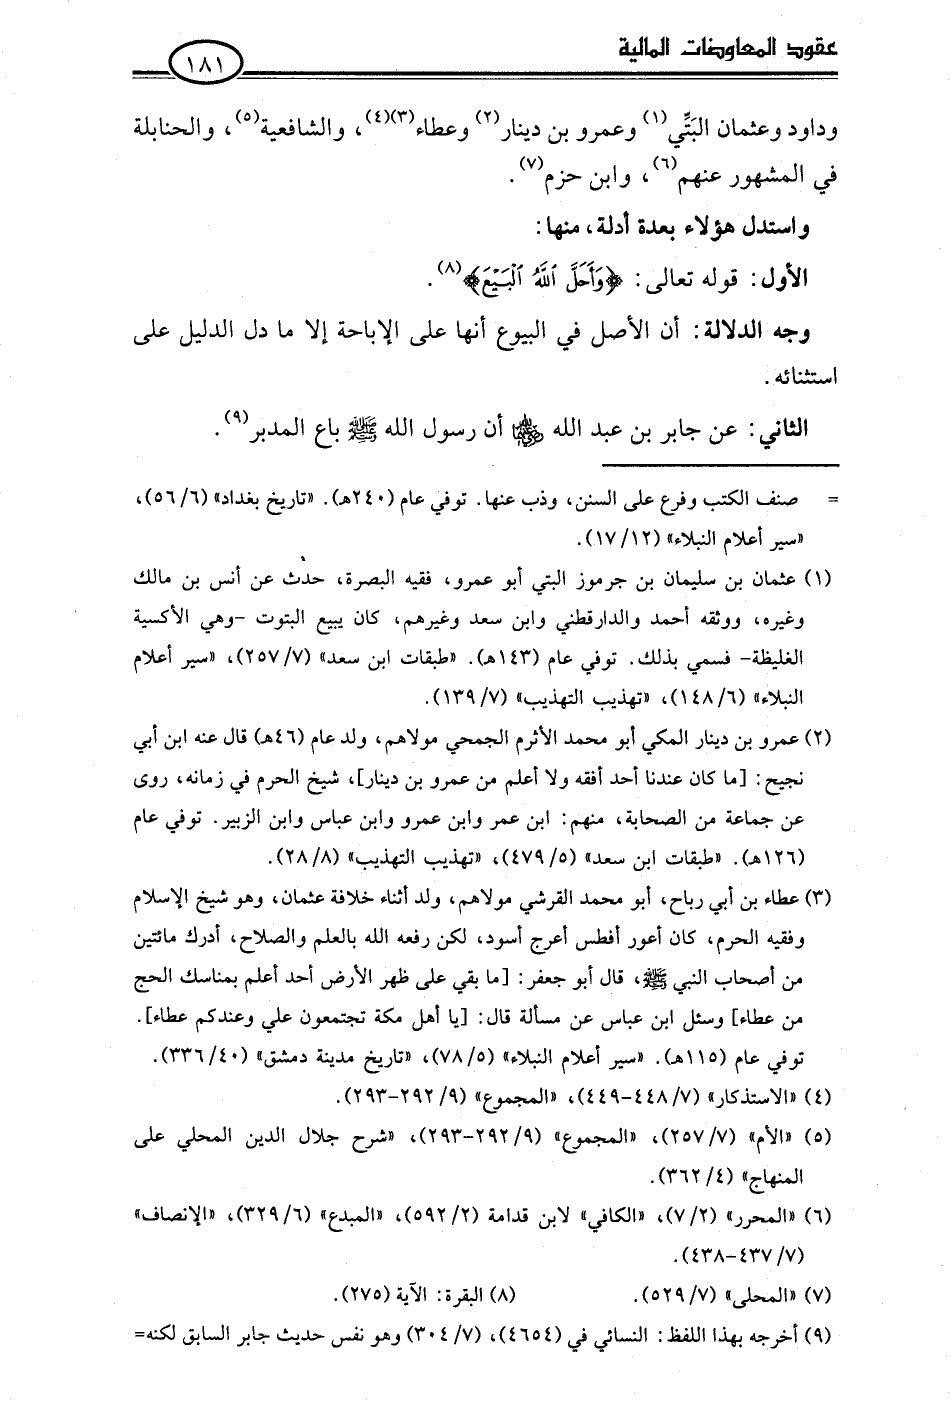 عقود المعاوضات المالية
١٨١
وداود وعثمان البَتِّي(١) وعمرو بن دينار(٢) وعطاء(٣)(٤)، والشافعية(٥)، والحنابلة
في المشهور عنهم(٦)، وابن حزم(٧).
واستدل هؤلاء بعدة أدلة، منها:
الأول: قوله تعالى: ﴿وَأَحَلَّ ٱللَّهُ ٱلْبَيْعَ﴾(٨).
وجه الدلالة: أن الأصل في البيوع أنها على الإباحة إلا ما دل الدليل على
استثنائه.
الثاني: عن جابر بن عبد الله أن رسول الله ﷺ باع المدبر(٩).
= صنف الكتب وفرع على السنن، وذب عنها. توفي عام (٢٤٠هـ). «تاريخ بغداد» (٥٦/٦)،
«سير أعلام النبلاء» (١٧/١٢).
(١) عثمان بن سليمان بن جرموز البتي أبو عمرو، فقيه البصرة، حدث عن أنس بن مالك
وغيره، ووثقه أحمد والدارقطني وابن سعد وغيرهم، كان يبيع البتوت -وهي الأكسية
الغليظة- فسمي بذلك. توفي عام (١٤٣هـ). «طبقات ابن سعد» (٢٥٧/٧)، «سير أعلام
النبلاء» (١٤٨/٦)، «تهذيب التهذيب» (١٣٩/٧).
(٢) عمرو بن دينار المكي أبو محمد الأثرم الجمحي مولاهم، ولد عام (٤٦هـ) قال عنه ابن أبي
نجيح: [ما كان عندنا أحد أفقه ولا أعلم من عمرو بن دينار]، شيخ الحرم في زمانه، روى
عن جماعة من الصحابة، منهم: ابن عمر وابن عمرو وابن عباس وابن الزبير. توفي عام
(١٢٦هـ). «طبقات ابن سعد» (٤٧٩/٥)، «تهذيب التهذيب» (٢٨/٨).
(٣) عطاء بن أبي رباح، أبو محمد القرشي مولاهم، ولد أثناء خلافة عثمان، وهو شيخ الإسلام
وفقيه الحرم، كان أعور أفطس أعرج أسود، لكن رفعه الله بالعلم والصلاح، أدرك مائتين
من أصحاب النبي ﷺ، قال أبو جعفر: [ما بقي على ظهر الأرض أحد أعلم بمناسك الحج
من عطاء] وسئل ابن عباس عن مسألة قال: [يا أهل مكة تجتمعون علي وعندكم عطاء].
توفي عام (١١٥هـ). «سير أعلام النبلاء» (٧٨/٥)، «تاريخ مدينة دمشق» (٣٣٦/٤٠).
(٤) «الاستذكار» (٤٤٨/٧-٤٤٩)، «المجموع» (٢٩٢/٩-٢٩٣).
(٥) «الأم» (٢٥٧/٧)، «المجموع» (٢٩٢/٩-٢٩٣)، «شرح جلال الدين المحلي على
المنهاج» (٣٦٢/٤).
(٦) «المحرر» (٧/٢)، «الكافي» لابن قدامة (٥٩٢/٢)، «المبدع» (٣٢٩/٦)، «الإنصاف»
(٤٣٧/٧-٤٣٨).
(٧) «المحلى» (٥٢٩/٧). (٨) البقرة: الآية (٢٧٥).
(٩) أخرجه بهذا اللفظ: النسائي في (٤٦٥٤)، (٣٠٤/٧) وهو نفس حديث جابر السابق لكنه=